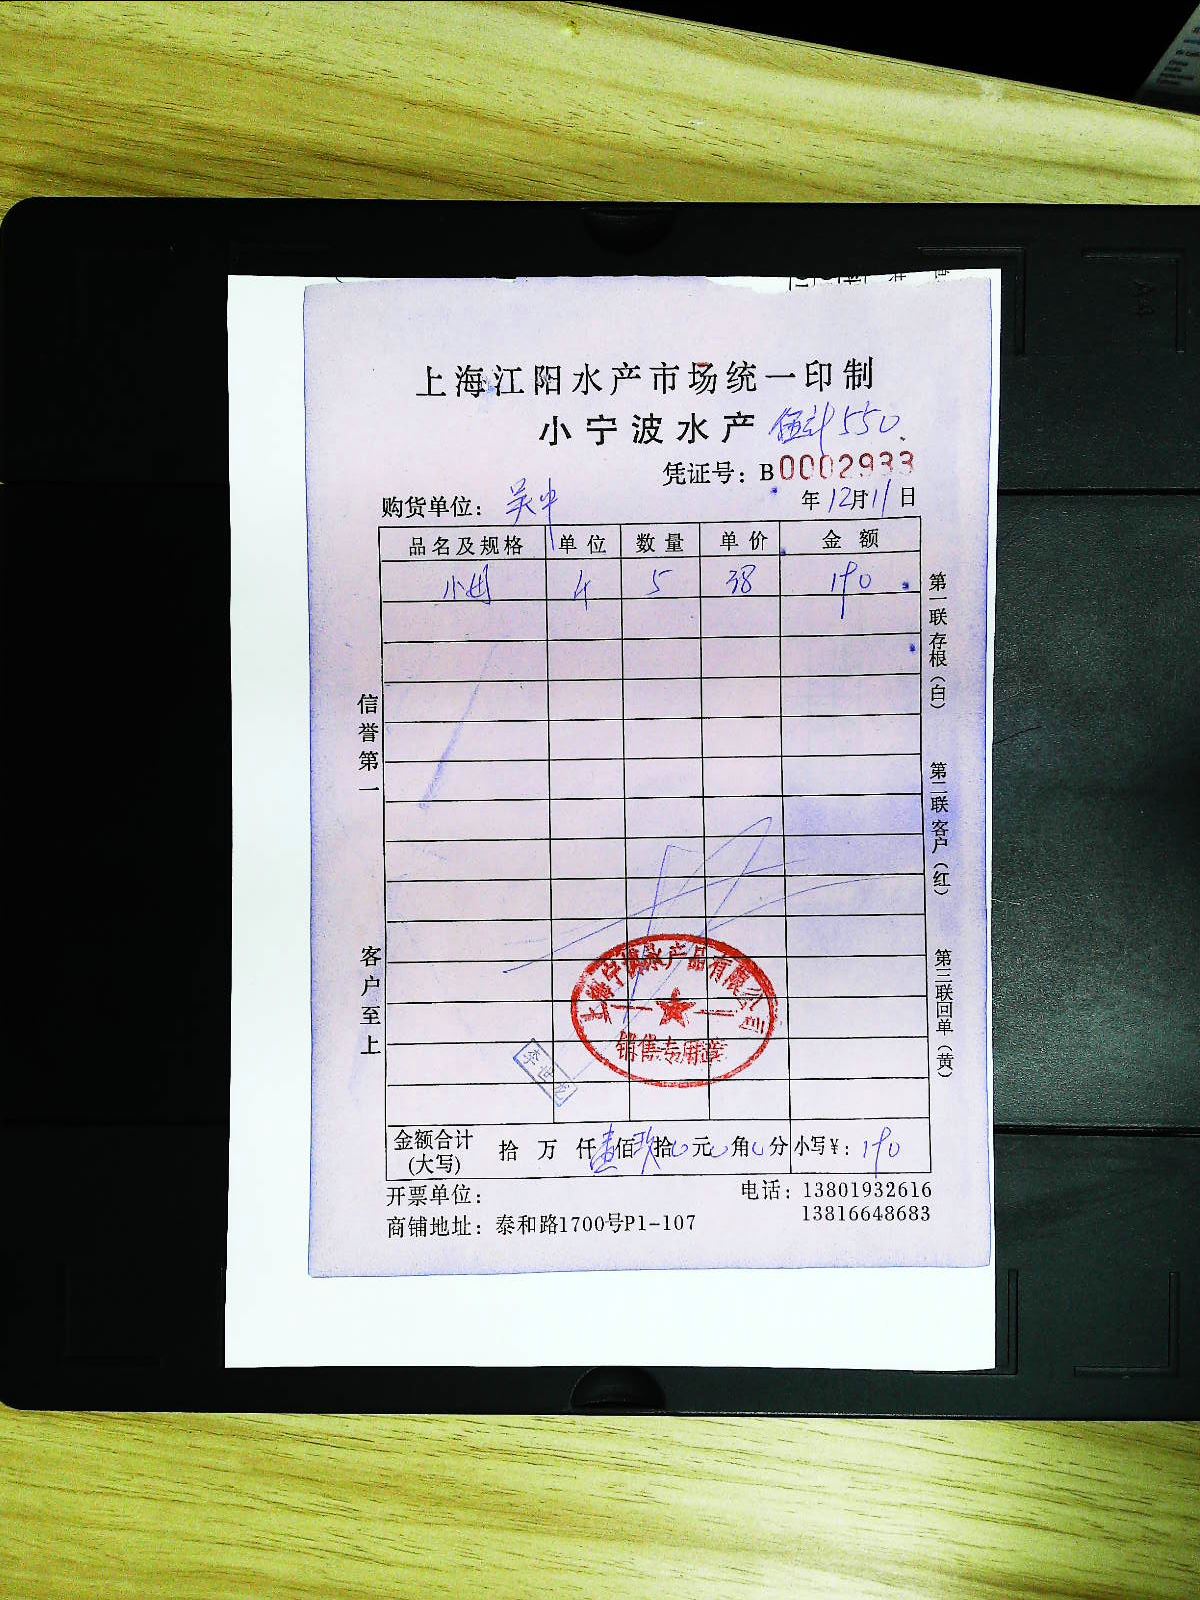 上海江阳水产市场统一印制
小宁波水产 550
凭证号：B0002933
购货单位：吴中 年12月11日
品名及规格 单位 数量 单价 金额
小 5 38 190
信誉第一
客户至上
第一联存根（白）
第二联客户（红）
第三联回单（黄）
水产品有限公司
销售专用章
李世龙
金额合计(大写) 拾 万 仟壹佰玖拾0元0角0分 小写¥：190
开票单位： 电话：13801932616
13816648683
商铺地址：泰和路1700号P1-107